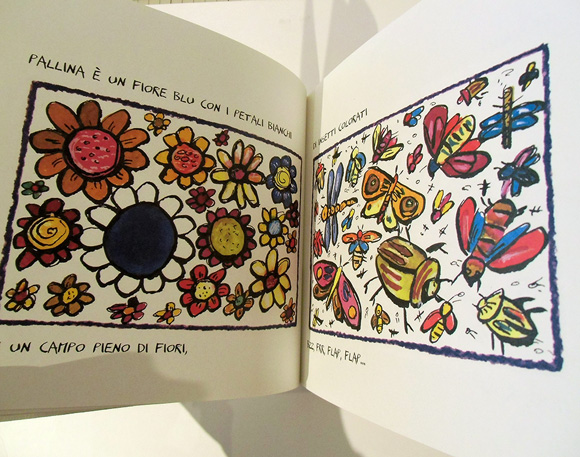 PALLINA È UN FIORE BLU CON I PETALI BIANCHI
UN CAMPO PIENO DI FIORI,
DI INSETTI COLORATI
FRR, FLAP, FLAP...